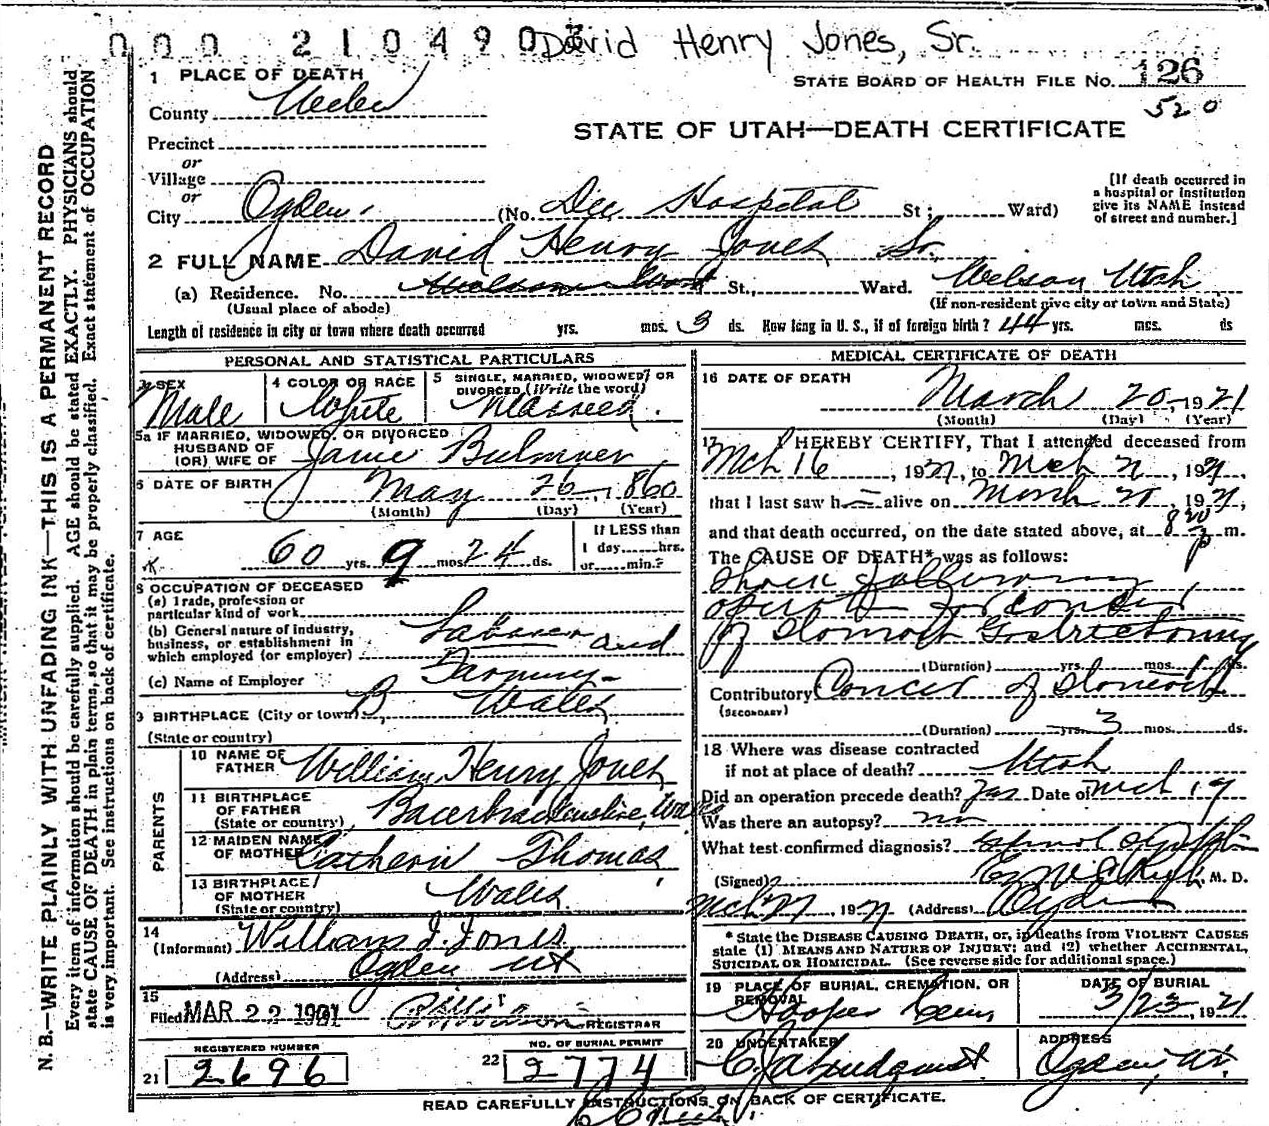 000 210490
David Henry Jones, Sr.
1 PLACE OF DEATH
STATE BOARD OF HEALTH FILE No. 126
520
County Weber
STATE OF UTAH—DEATH CERTIFICATE
Precinct
or
Village
or
City Ogden (No. Dee Hospital St; Ward)
[If death occurred in a hospital or institution give its NAME instead of street and number.]
2 FULL NAME David Henry Jones Sr.
(a) Residence. No. St., Ward. Wilson Utah
(Usual place of abode) (If non-resident give city or town and State)
Length of residence in city or town where death occurred yrs. mos. 3 ds. How long in U. S., if of foreign birth? 44 yrs. mos. ds
PERSONAL AND STATISTICAL PARTICULARS
3 SEX
Male
4 COLOR OR RACE
White
5 SINGLE, MARRIED, WIDOWED, OR DIVORCED (Write the word)
Married.
5a IF MARRIED, WIDOWED, OR DIVORCED
HUSBAND OF
(OR) WIFE OF Jane Bulmer
6 DATE OF BIRTH May 26, 1860
(Month) (Day) (Year)
7 AGE
60 yrs 9 mos 24 ds.
If LESS than
1 day......hrs.
or......min.?
8 OCCUPATION OF DECEASED
(a) Trade, profession or
particular kind of work
(b) General nature of industry,
business, or establishment in
which employed (or employer)
Laborer and
Farming
(c) Name of Employer
9 BIRTHPLACE (City or town) Wales
(State or country)
PARENTS
10 NAME OF
FATHER William Henry Jones
11 BIRTHPLACE
OF FATHER
(State or country) Wales
12 MAIDEN NAME
OF MOTHER Catherin Thomas
13 BIRTHPLACE
OF MOTHER
(State or country) Wales.
14
(Informant) William J. Jones
(Address) Ogden Ut
15
Filed MAR 22 1921 REGISTRAR
REGISTERED NUMBER
21 2696
NO. OF BURIAL PERMIT
22 2774
MEDICAL CERTIFICATE OF DEATH
16 DATE OF DEATH
March 20, 1921
(Month) (Day) (Year)
17 I HEREBY CERTIFY, That I attended deceased from
Mch 16, 1921, to Mch 21, 1921,
that I last saw h alive on March 20, 1921,
and that death occurred, on the date stated above, at 8 20 p m.
The CAUSE OF DEATH* was as follows:
Shock following
operation for cancer
of stomach Gastrectomy
(Duration) yrs. mos. ds.
Contributory Cancer of stomach
(SECONDARY)
(Duration) yrs. 3 mos. ds.
18 Where was disease contracted
if not at place of death? Utah
Did an operation precede death? Yes Date of Mch 19
Was there an autopsy? no
What test confirmed diagnosis?
(Signed) M. D.
1921 (Address) Ogden
* State the DISEASE CAUSING DEATH, or, in deaths from VIOLENT CAUSES
state (1) MEANS AND NATURE OF INJURY; and (2) whether ACCIDENTAL,
SUICIDAL OR HOMICIDAL. (See reverse side for additional space.)
19 PLACE OF BURIAL, CREMATION, OR
REMOVAL
Hooper Cem,
DATE OF BURIAL
3/23, 1921
20 UNDERTAKER
ADDRESS
Ogden, Ut.
READ CAREFULLY INSTRUCTIONS ON BACK OF CERTIFICATE.
N. B.—WRITE PLAINLY WITH UNFADING INK—THIS IS A PERMANENT RECORD
Every item of information should be carefully supplied. AGE should be stated EXACTLY. PHYSICIANS should
state CAUSE OF DEATH in plain terms, so that it may be properly classified. Exact statement of OCCUPATION
is very important. See instructions on back of certificate.